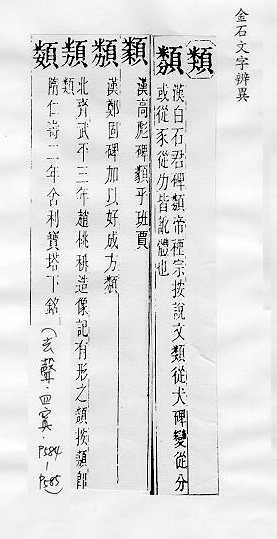 金石文字辨異
類
類 漢白石君碑類帝禋宗按說文類從犬碑變從分
或從豕從勿皆訛體也
類 漢高彪碑類乎班賈
類 漢鄭固碑加以好成方類
類 北齊武平三年趙桃椒造像記有形之類按類即
類
類 隋仁壽二年舍利寶塔下銘(去聲·四寘·P584-P585)